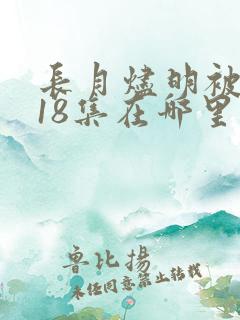 長月燼明被
18集在哪里
魯比揚
未經同意禁止轉載